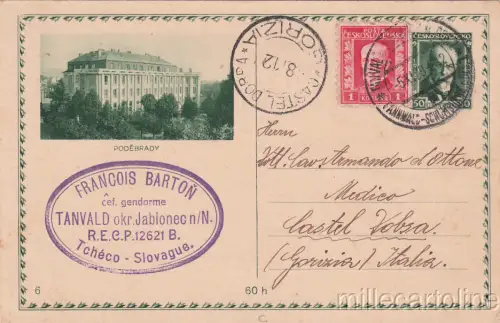 PODĚBRADY
FRANCOIS BARTOŇ
čet. gendorme
TANVALD okr. Jablonec n/N.
R.E.C.P. 12621 B.
Tchéco - Slovaque.
6
60 h
CASTEL DOBRA * GORIZIA *
8.12
ČESKOSLOVENSKO
1
1
ČESKOSLOVENSKO
50
Herrn
Dott. Cav. Armando d'Ottone
Medico
Castel Dobra
(Gorizia) Italia.
millecartoline